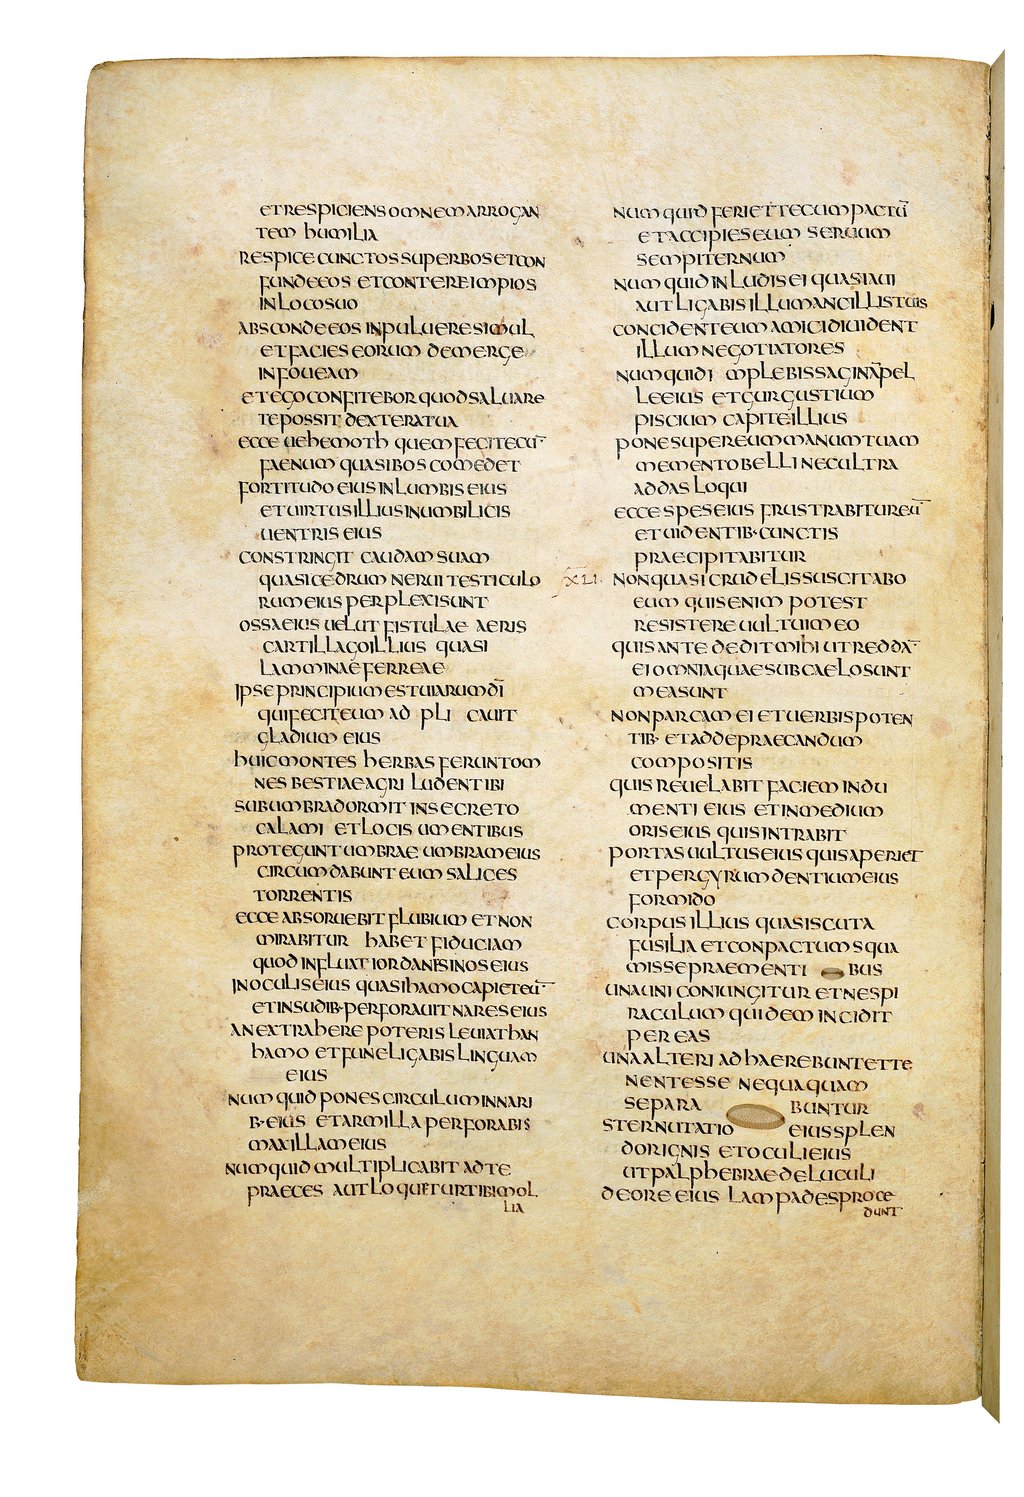 ET RESPICIENS OMNEM ARROGAN
TEM HUMILIA
RESPICE CUNCTOS SUPERBOS ET CON
FUNDE EOS ET CONTERE IMPIOS
IN LOCO SUO
ABSCONDE EOS IN PULUERE SIMUL
ET FACIES EORUM DEMERGE
IN FOUEAM
ET EGO CONFITEBOR QUOD SALUARE
TE POSSIT DEXTERA TUA
ECCE UEHEMOTH QUEM FECI TECŪ
FAENUM QUASI BOS COMEDET
FORTITUDO EIUS IN LUMBIS EIUS
ET UIRTUS ILLIUS IN UMBILICIS
UENTRIS EIUS
CONSTRINGIT CAUDAM SUAM
QUASI CEDRUM NERUI TESTICULO
RUM EIUS PERPLEXI SUNT
OSSA EIUS UELUT FISTULAE AERIS
CARTILLAGO ILLIUS QUASI
LAMMINAE FERREAE
IPSE PRINCIPIUM EST UIARUM DĪ
QUI FECIT EUM AD PLI CAUIT
GLADIUM EIUS
HUIC MONTES HERBAS FERUNT OM
NES BESTIAE AGRI LUDENT IBI
SUB UMBRA DORMIT IN SECRETO
CALAMI ET LOCIS UMENTIBUS
PROTEGUNT UMBRAE UMBRAM EIUS
CIRCUMDABUNT EUM SALICES
TORRENTIS
ECCE ABSORUEBIT FLUBIUM ET NON
MIRABITUR HABET FIDUCIAM
QUOD INFLUAT IORDANIS IN OS EIUS
IN OCULIS EIUS QUASI HAMO CAPIET EŪ
ET IN SUDIB· PERFORAUIT NARES EIUS
AN EXTRAHERE POTERIS LEUIATHAN
HAMO ET FUNE LIGABIS LINGUAM
EIUS
NUMQUID PONES CIRCULUM IN NARI
B· EIUS ET ARMILLA PERFORABIS
MAXILLAM EIUS
NUMQUID MULTIPLICABIT AD TE
PRAECES AUT LOQUETUR TIBI MOL
LIA
NUMQUID FERIET TECUM PACTŪ
ET ACCIPIES EUM SERUUM
SEMPITERNUM
NUMQUID INLUDIS EI QUASI AUI
AUT LIGABIS ILLUM ANCILLIS TUIS
CONCIDENT EUM AMICI DIUIDENT
ILLUM NEGOTIATORES
NUMQUID IMPLEBIS SAGINĀ PEL
LE EIUS ET GURGUSTIUM
PISCIUM CAPITE ILLIUS
PONE SUPER EUM MANUM TUAM
MEMENTO BELLI NEC ULTRA
ADDAS LOQUI
ECCE SPES EIUS FRUSTRABITUR EŪ
ET UIDENTIB· CUNCTIS
PRAECIPITABITUR
XLI. NON QUASI CRUDELIS SUSCITABO
EUM QUIS ENIM POTEST
RESISTERE UULTUI MEO
QUIS ANTE DEDIT MIHI UT REDDĀ
EI OMNIA QUAE SUB CAELO SUNT
MEA SUNT
NON PARCAM EI ET UERBIS POTEN
TIB· ET AD DEPRAECANDUM
COMPOSITIS
QUIS REUELABIT FACIEM INDU
MENTI EIUS ET IN MEDIUM
ORIS EIUS QUIS INTRABIT
PORTAS UULTUS EIUS QUIS APERIET
ET PER GYRUM DENTIUM EIUS
FORMIDO
CORPUS ILLIUS QUASI SCUTA
FUSILIA ET CONPACTUM SQUA
MIS SE PRAEMENTI BUS
UNA UNI CONIUNGITUR ET NE SPI
RACULUM QUIDEM INCIDIT
PER EAS
UNA ALTERI ADHAEREBUNT ET TE
NENTES SE NEQUAQUAM
SEPARA BUNTUR
STERNUTATIO EIUS SPLEN
DOR IGNIS ET OCULI EIUS
UT PALPHEBRAE DELUCULI
DE ORE EIUS LAMPADES PROCE
DUNT